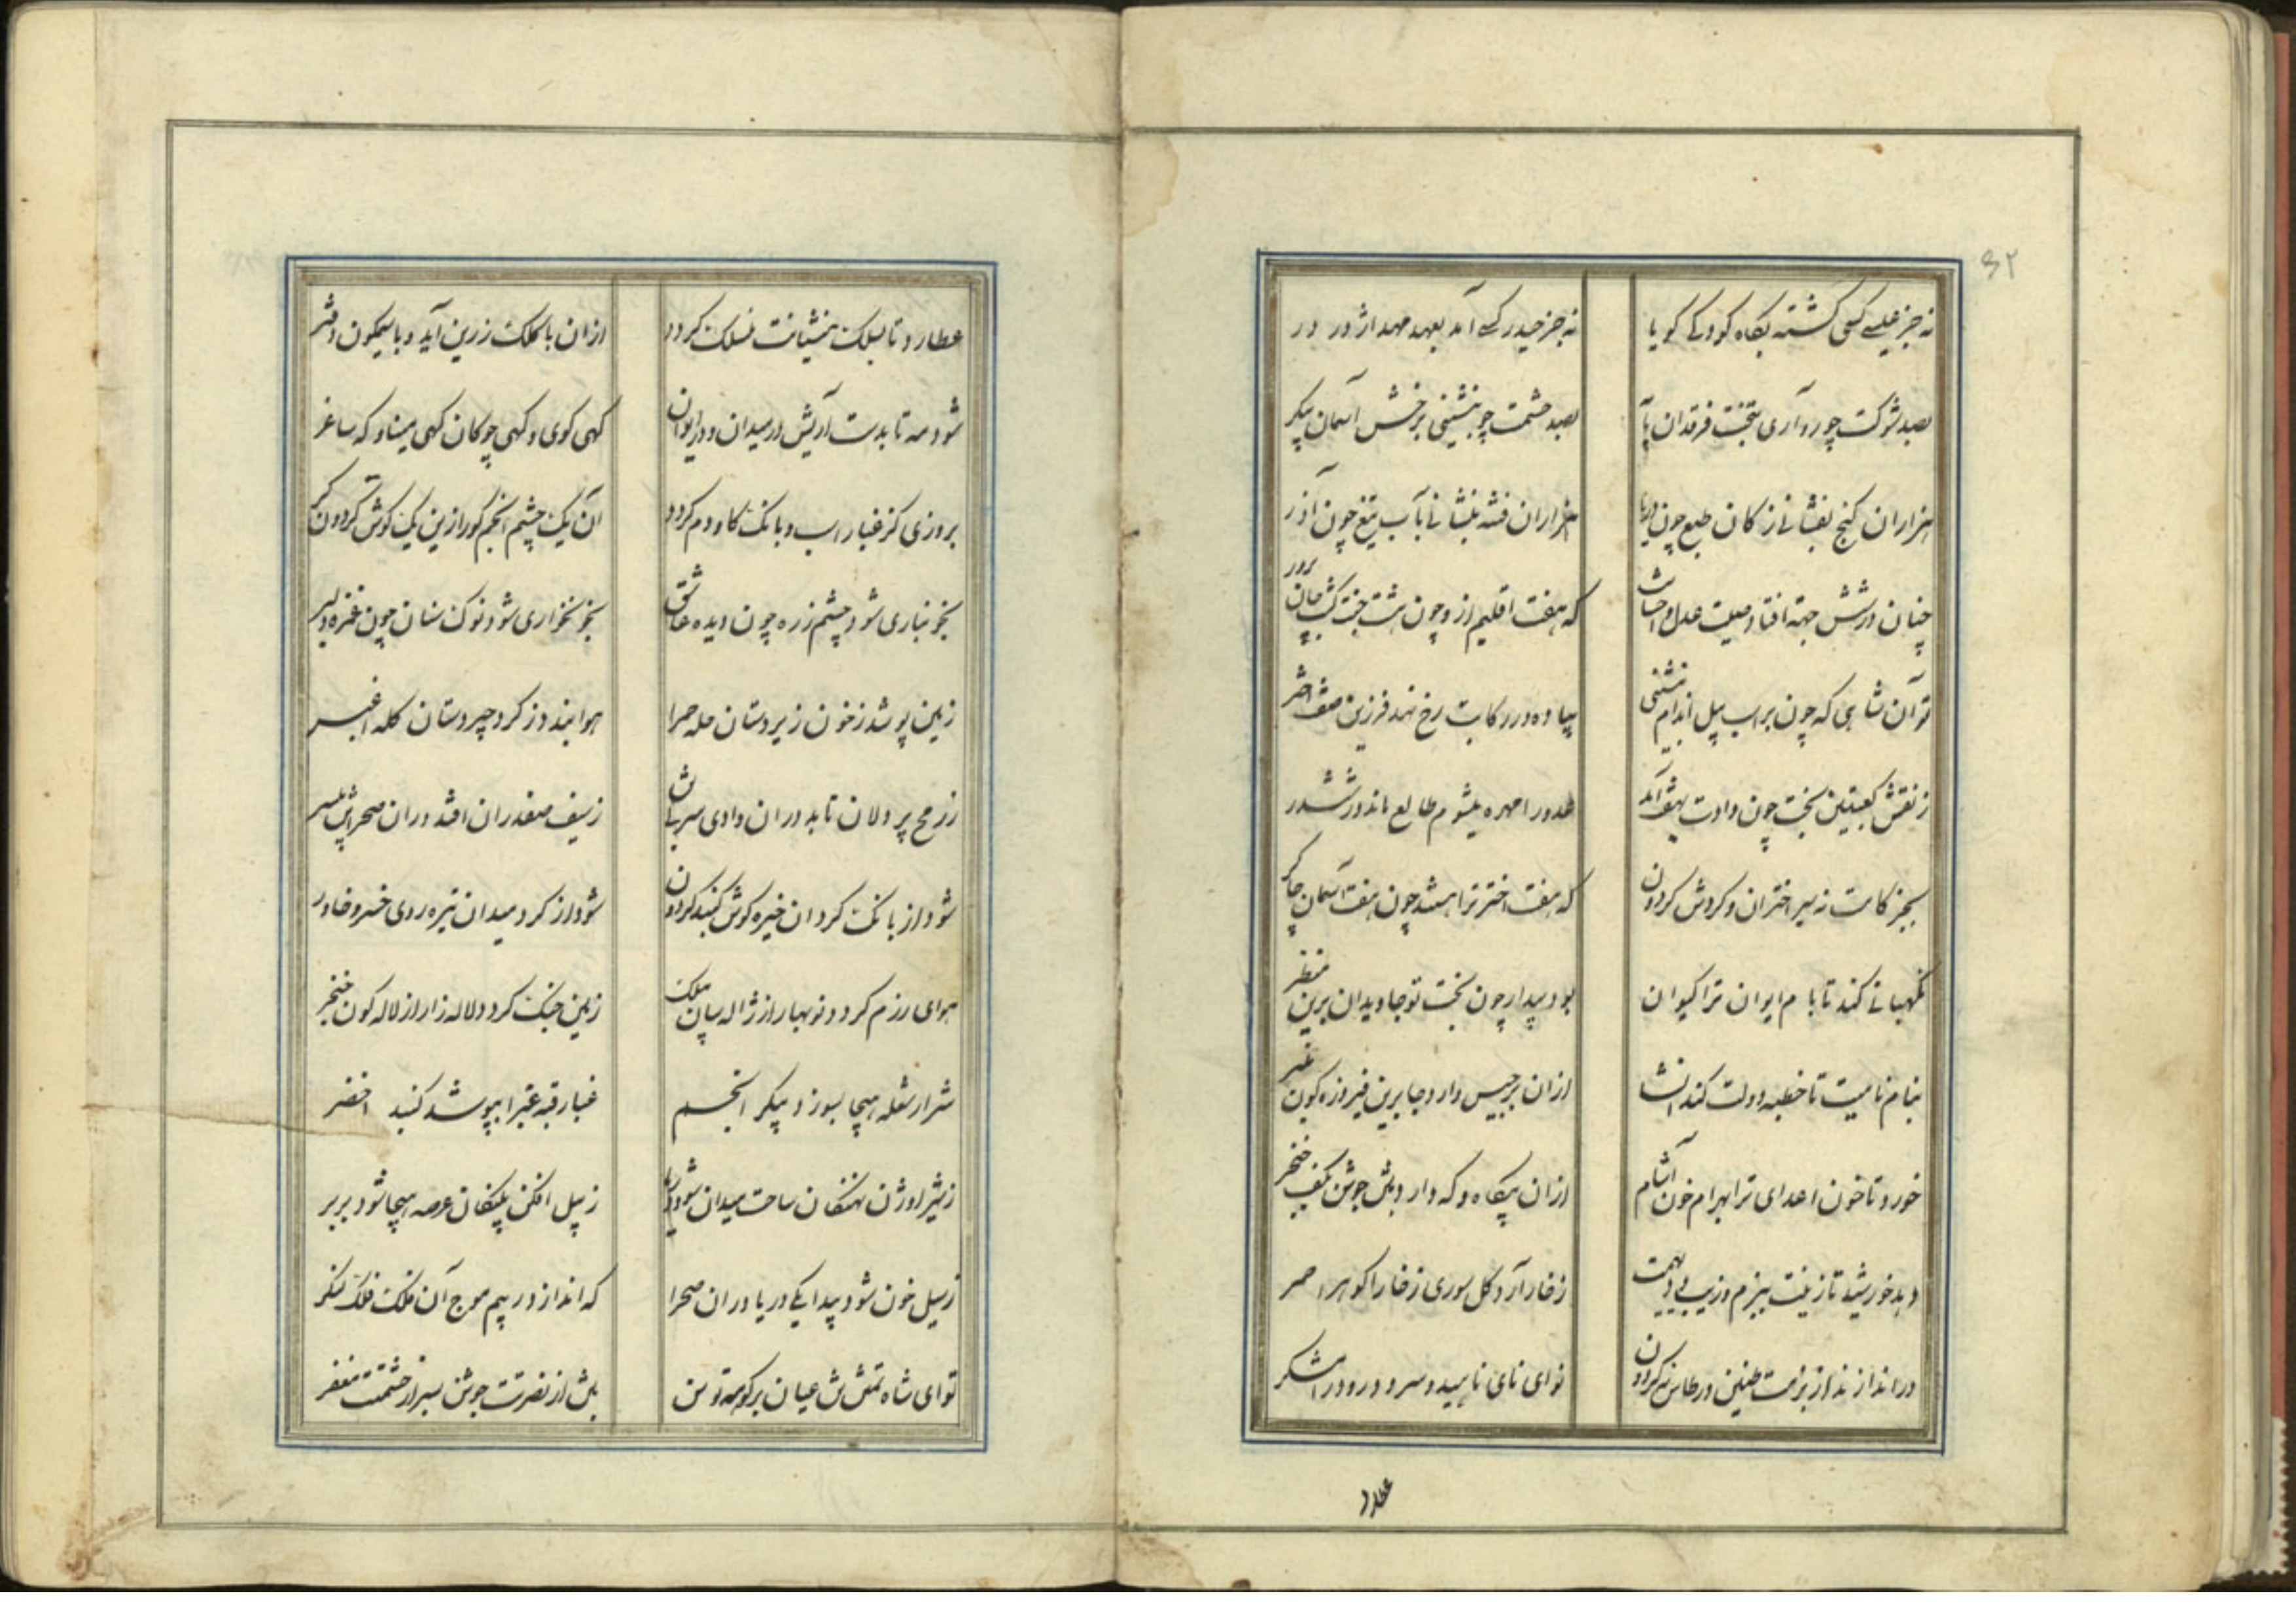 ۶۲
نه جز عیسی کسی گشته بگاه کودکی گویا نه جز حیدر کسی آمد بعهد مهد اژدر در
بصد شوکت چو رو آری بتخت فرقدان پا بصد حشمت چو بنشینی برخش آسمان پیکر
هزاران گنج بفشانی ز کان طبع چون دریا هزاران فتنه بنشانی بآب تیغ چون آذر
چنان در شش جهة افتاد صیت عدل و احسانت که هفت اقلیم ازو چون هشت جنت گشت جان پرور
تو آن شاهی که چون بر اسب پیل اندام بنشینی پیاده در رکابت رخ نهد فرزین صف اشر
ز نقش کعبتین بخت چون دادت آمد عدو را مهره میشوم طالع ماند در ششدر
بجز کامت نه سیر اختران و گردش گردون که هفت اختر ترا هستند چون هفت آسمان چاکر
نگهبانی کند تا بام ایوان ترا کیوان بود بیدار چون بخت تو جاویدان برین منظر
بنام نامیت تا خطبه دولت کند انشا ازان برجیس دارد جا برین فیروزه گون منبر
خورد تا خون اعدای ترا بهرام خون آشام ازان بیگاه و گه دارد بتن جوشن بکف خنجر
دهد خورشید تا زینت ببزم و زیب ز خار آرد گل سوری ز خارا گوهر احمر
در اندازند از بزمت طنین در طاس نه گردون نوای نای ناهید و سرود رود رامشگر
عطارد
عطارد تا بسلک منشیانت منسلک گردد ازان با کلک زرین آید و با سیمگون دفتر
شود مه تا بدست آریش در میدان و در ایوان گهی گوی و گهی چوگان گهی مینا و گه ساغر
بروزی کز غبار اسب و بانگ گاودم گردد آن یک چشم انجم کور ازین یک گوش گردون کر
بخونباری شود چشم زره چون دیده عاشق بخونخواری شود نوک سنان چون غمزه دلبر
زمین پوشد ز خون زیردستان حله حمرا هوا بندد ز گرد چیردستان کله اغبر
ز رمح پر دلان تا بد دران وادی سر ز سیف صفدران افتد دران صحرا
شود از بانگ گردان خیره گوش گنبد گردون شود از گرد میدان تیره روی خسرو خاور
هوای رزم گردد نوبهار از ژاله سان زمین جنگ گردد لاله زار از لاله گون خنجر
شرار شعله هیجا بسوزد پیکر انجم غبار قبه غبرا بپوشد گنبد اخضر
ز شیر اوژن نهنگان ساحت میدان شود دریا ز پیل افکن پلنگان عرصه هیجا شود بربر
ز سیل خون شود پیدا یکی دریا دران صحرا که اندازد ز بیم موج آن فلک فلک لنگر
تو ای شاه تهمتن عیان بر کوهه توسن بتن از نصرتت جوشن بسر از حشمتت مغفر